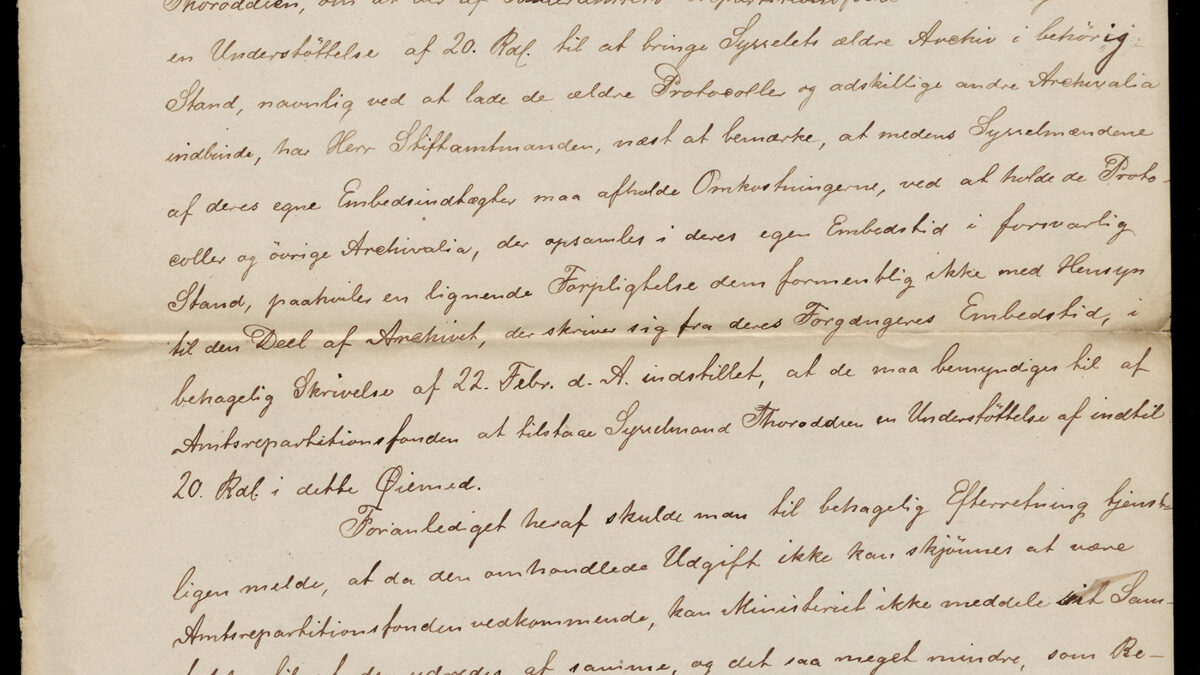 Thoroddsen, om at der af
en Understöttelse af 20. Rdl. til at bringe Sysselets ældre Archiv i behörig
Stand, navnlig ved at lade de ældre Protocoller og adskillige andre Archivalia
indbinde, har Herr Stiftamtmanden, næst at bemærke, at medens Sysselmændene
af deres egne Embedsindtægter maa afholde Omkostningerne, ved at holde de Proto-
coller og övrige Archivalia, der opsamles i deres egen Embedstid i forsvarlig
Stand, paahviler en lignende Forpligtelse dem formentlig ikke med Hensyn
til den Deel af Archivet, der skriver sig fra deres Forgængeres Embedstid, i
behagelig Skrivelse af 22. Febr. d. A. indstillet, at de maa bemyndiges til af
Amtsrepartitionsfonden at tilstaae Sysselmand Thoroddsen en Understöttelse af indtil
20. Rdl. i dette Øiemed.
Foranlediget heraf skulde man til behagelig Efterretning tjenst-
ligen melde, at da den omhandlede Udgift ikke kan skjönnes at være
Amtsrepartitionsfonden vedkommende, kan Ministeriet ikke meddele sit Sam-
af samme, og det saa meget mindre, som Re-